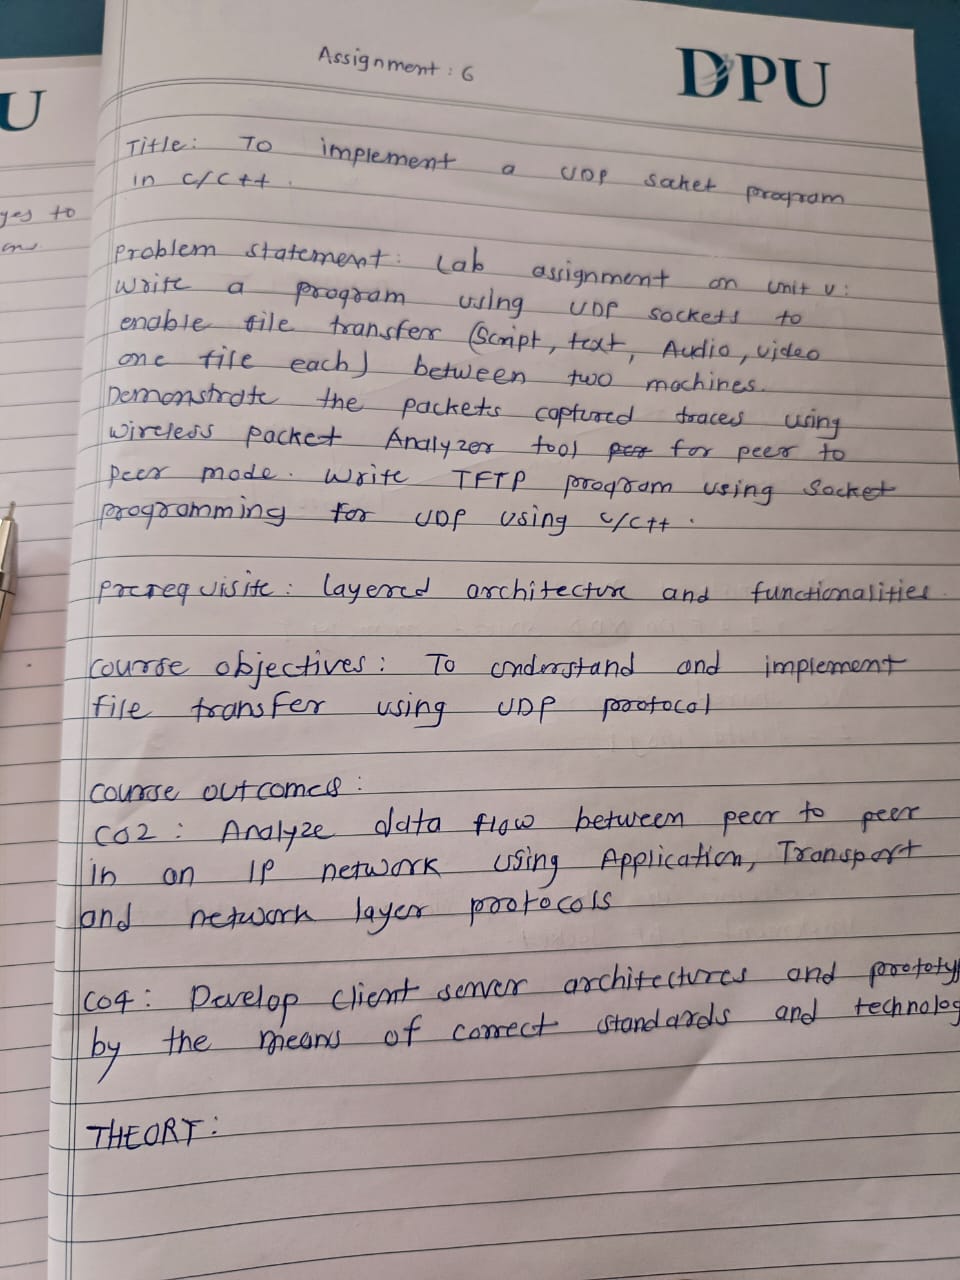 U
yes to
Assignment : 6
DPU
Title: To implement a UDP socket program
in c/c++.
problem statement: Lab assignment on unit v:
Write a program using UDP sockets to
enable file transfer (Script, text, Audio, video
one file each) between two machines.
Demonstrate the packets captured traces using
wireless packet Analyzer tool for peer to
peer mode. Write TFTP program using Socket
programming for UDP using c/c++.
prerequisite: layered architecture and functionalities.
course objectives: To understand and implement
file transfer using UDP protocol
course outcomes:
CO2: Analyze data flow between peer to peer
in an IP network using Application, Transport
and network layer protocols
CO4: Develop client server architectures and prototy
by the means of correct standards and technolog
THEORY: